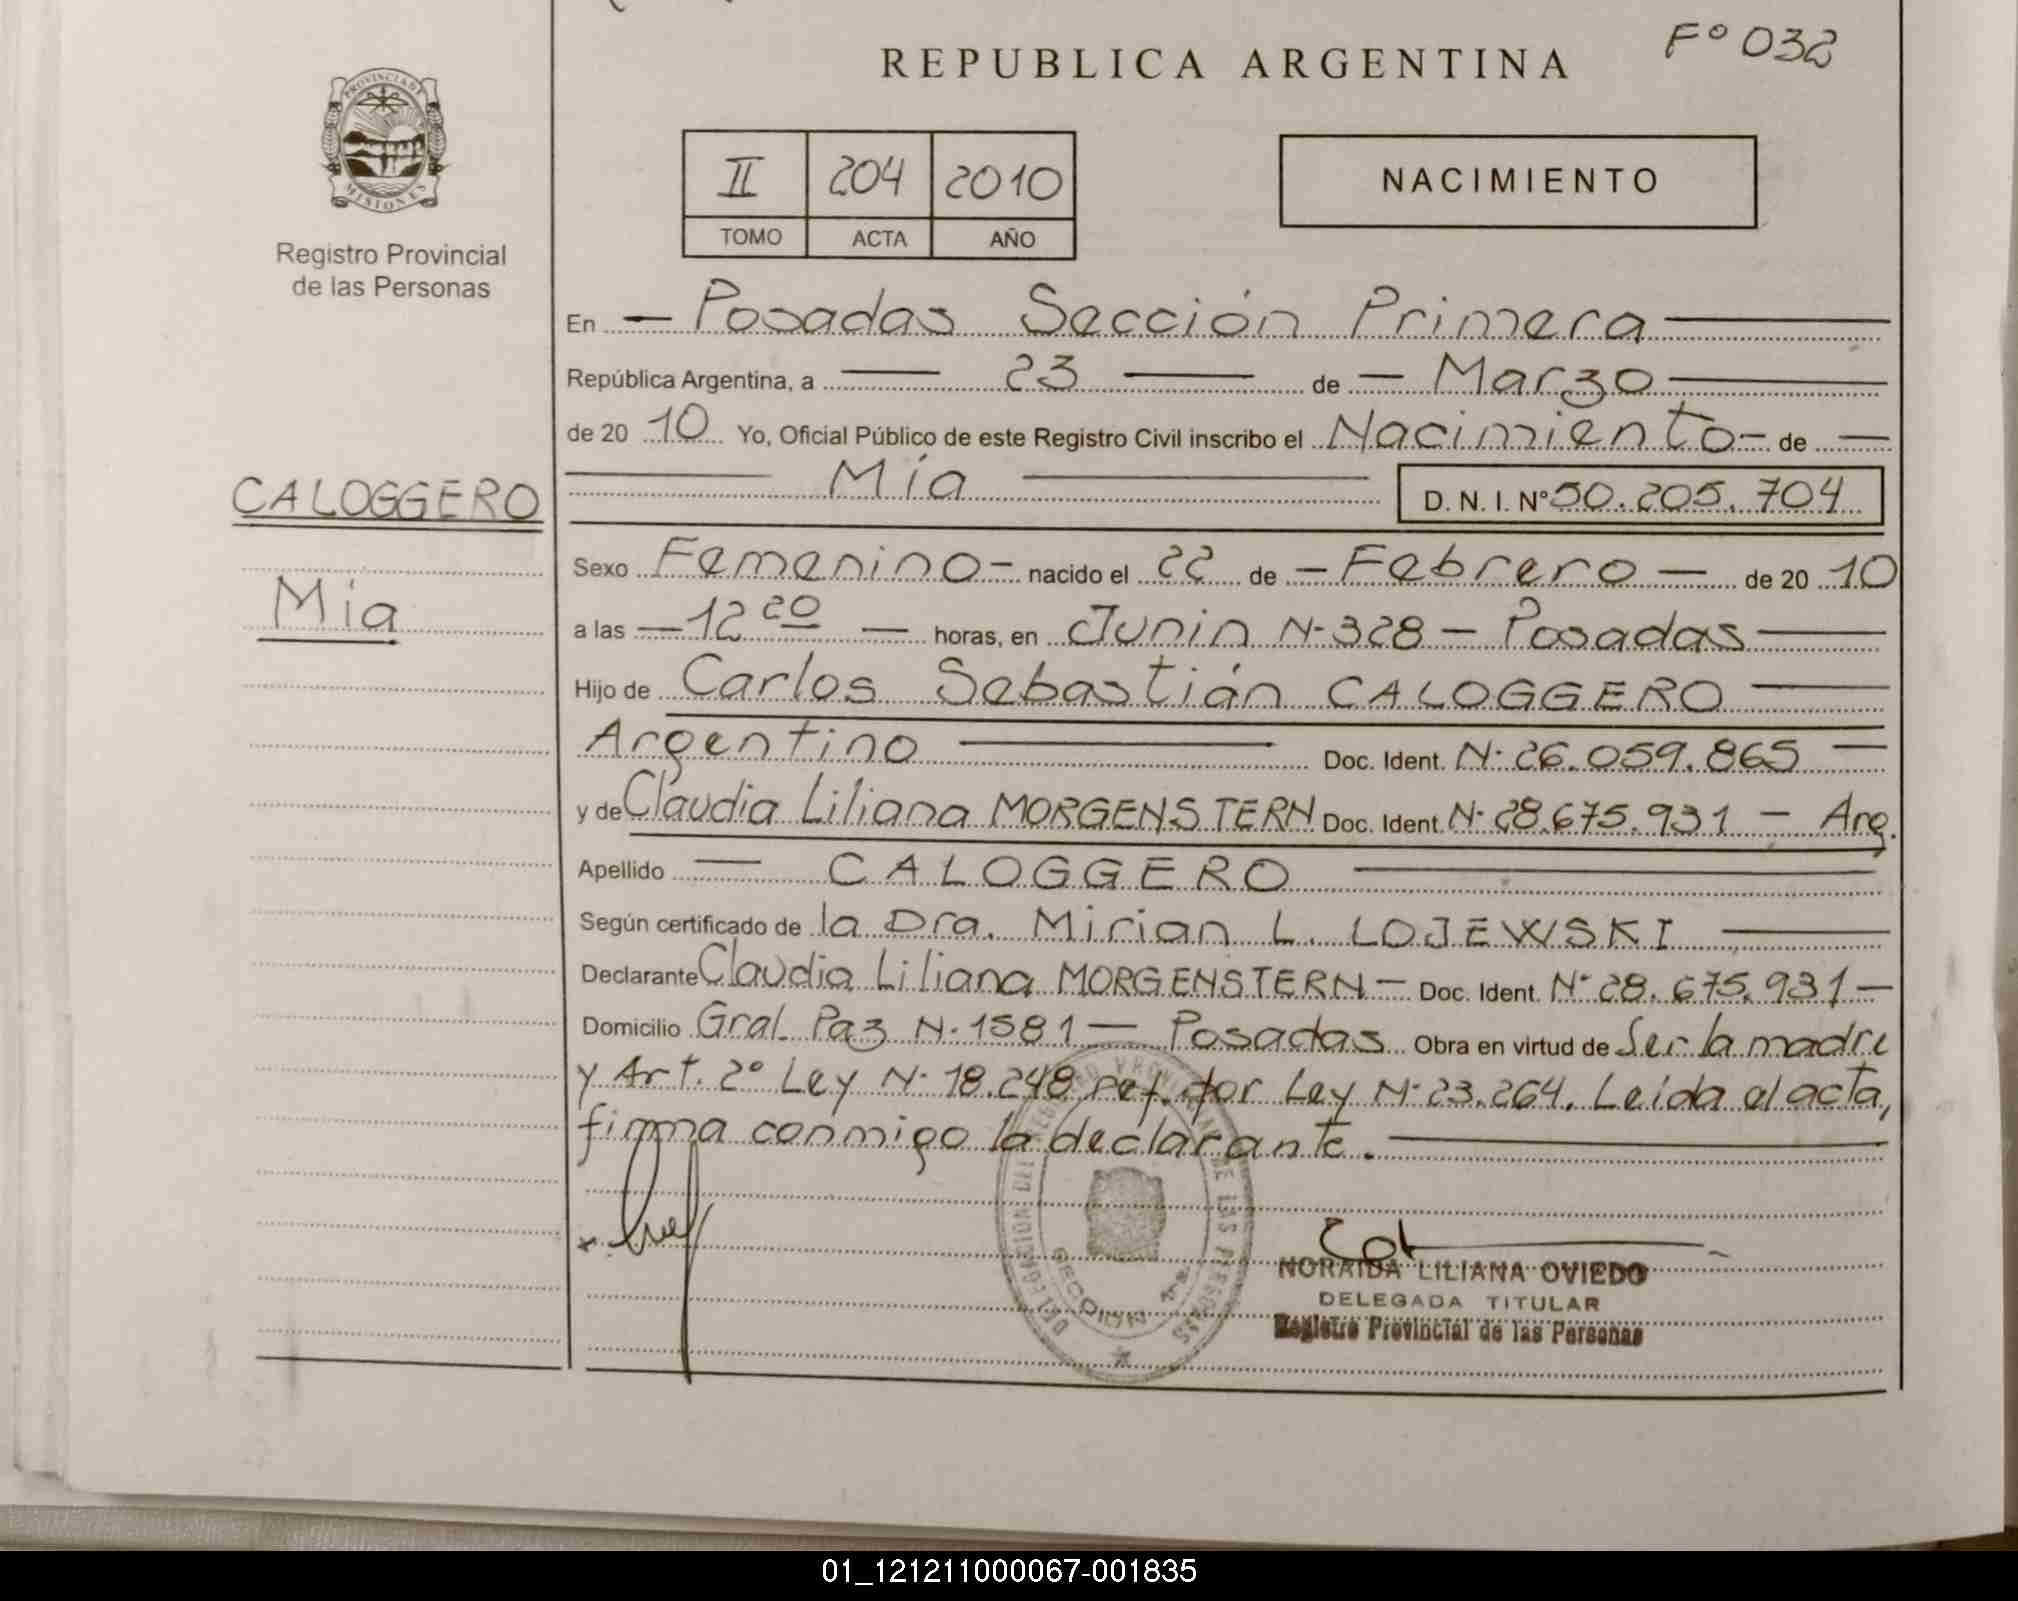 F° 032
REPUBLICA ARGENTINA
PROVINCIA DE
MISIONES
Registro Provincial
de las Personas
II 204 2010
TOMO ACTA AÑO
NACIMIENTO
En — Posadas Sección Primera —
República Argentina, a — 23 — de — Marzo —
de 20 10 Yo, Oficial Público de este Registro Civil inscribo el Nacimiento — de —
— Mía — D. N. I. N° 50.205.704
CALOGGERO
Mía
Sexo Femenino — nacido el 22 de — Febrero — de 20 10
a las — 12 20 — horas, en Junin N° 328 — Posadas —
Hijo de Carlos Sebastián CALOGGERO —
Argentino — Doc. Ident. N° 26.059.865 —
y de Claudia Liliana MORGENSTERN Doc. Ident. N° 28.675.931 — Arg.
Apellido — CALOGGERO —
Según certificado de la Dra. Mirian L. LOJEWSKI —
Declarante Claudia Liliana MORGENSTERN — Doc. Ident. N° 28.675.931 —
Domicilio Gral. Paz N° 1581 — Posadas Obra en virtud de Ser la madre
y Art. 2° Ley N° 18.248 ref. por Ley N° 23.264. Leída el acta,
firma conmigo la declarante. —
DELEGACION DEL REGISTRO PROVINCIAL DE LAS PERSONAS
SECCION 1ra
NORAIDA LILIANA OVIEDO
DELEGADA TITULAR
Registro Provincial de las Personas
01_121211000067-001835